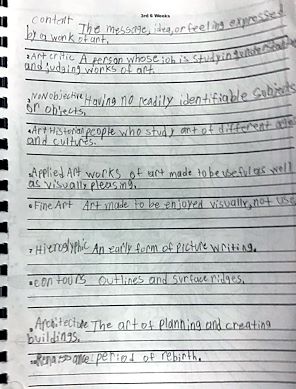 3rd 6 Weeks
content The message, idea, or feeling expressed
by a work of art.
Art critic A person whose job is studying, understanding
and judging works of art.
Nonobjective Having no readily identifiable subjects
or objects.
Art Historian people who study art of different
and cultures.
Applied Art works of art made to be useful as well
as visually pleasing.
Fine Art Art made to be enjoyed visually, not use
7 Hieroglyphic An early form of picture writing.
contours Outlines and surface ridges.
Architecture The art of planning and creating
buildings.
Renaissance period of rebirth.